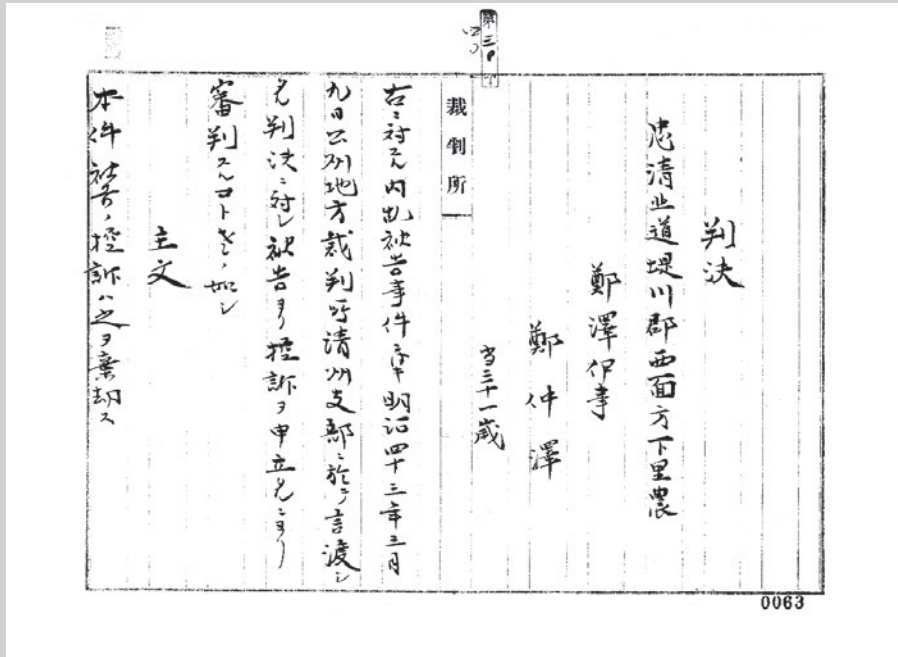 判決
忠清北道堤川郡西面方下里農
鄭澤伊事
鄭仲澤
当三十一歳
裁判所
右ニ対スル内乱被告事件ニ付明治四十三年三月
九日公州地方裁判所清州支部ニ於テ言渡シ
タル判決ニ対シ被告ヨリ控訴ヲ申立タルニヨリ
審判スルコト左ノ如シ
主文
本件被告ノ控訴ハ之ヲ棄却ス
0063